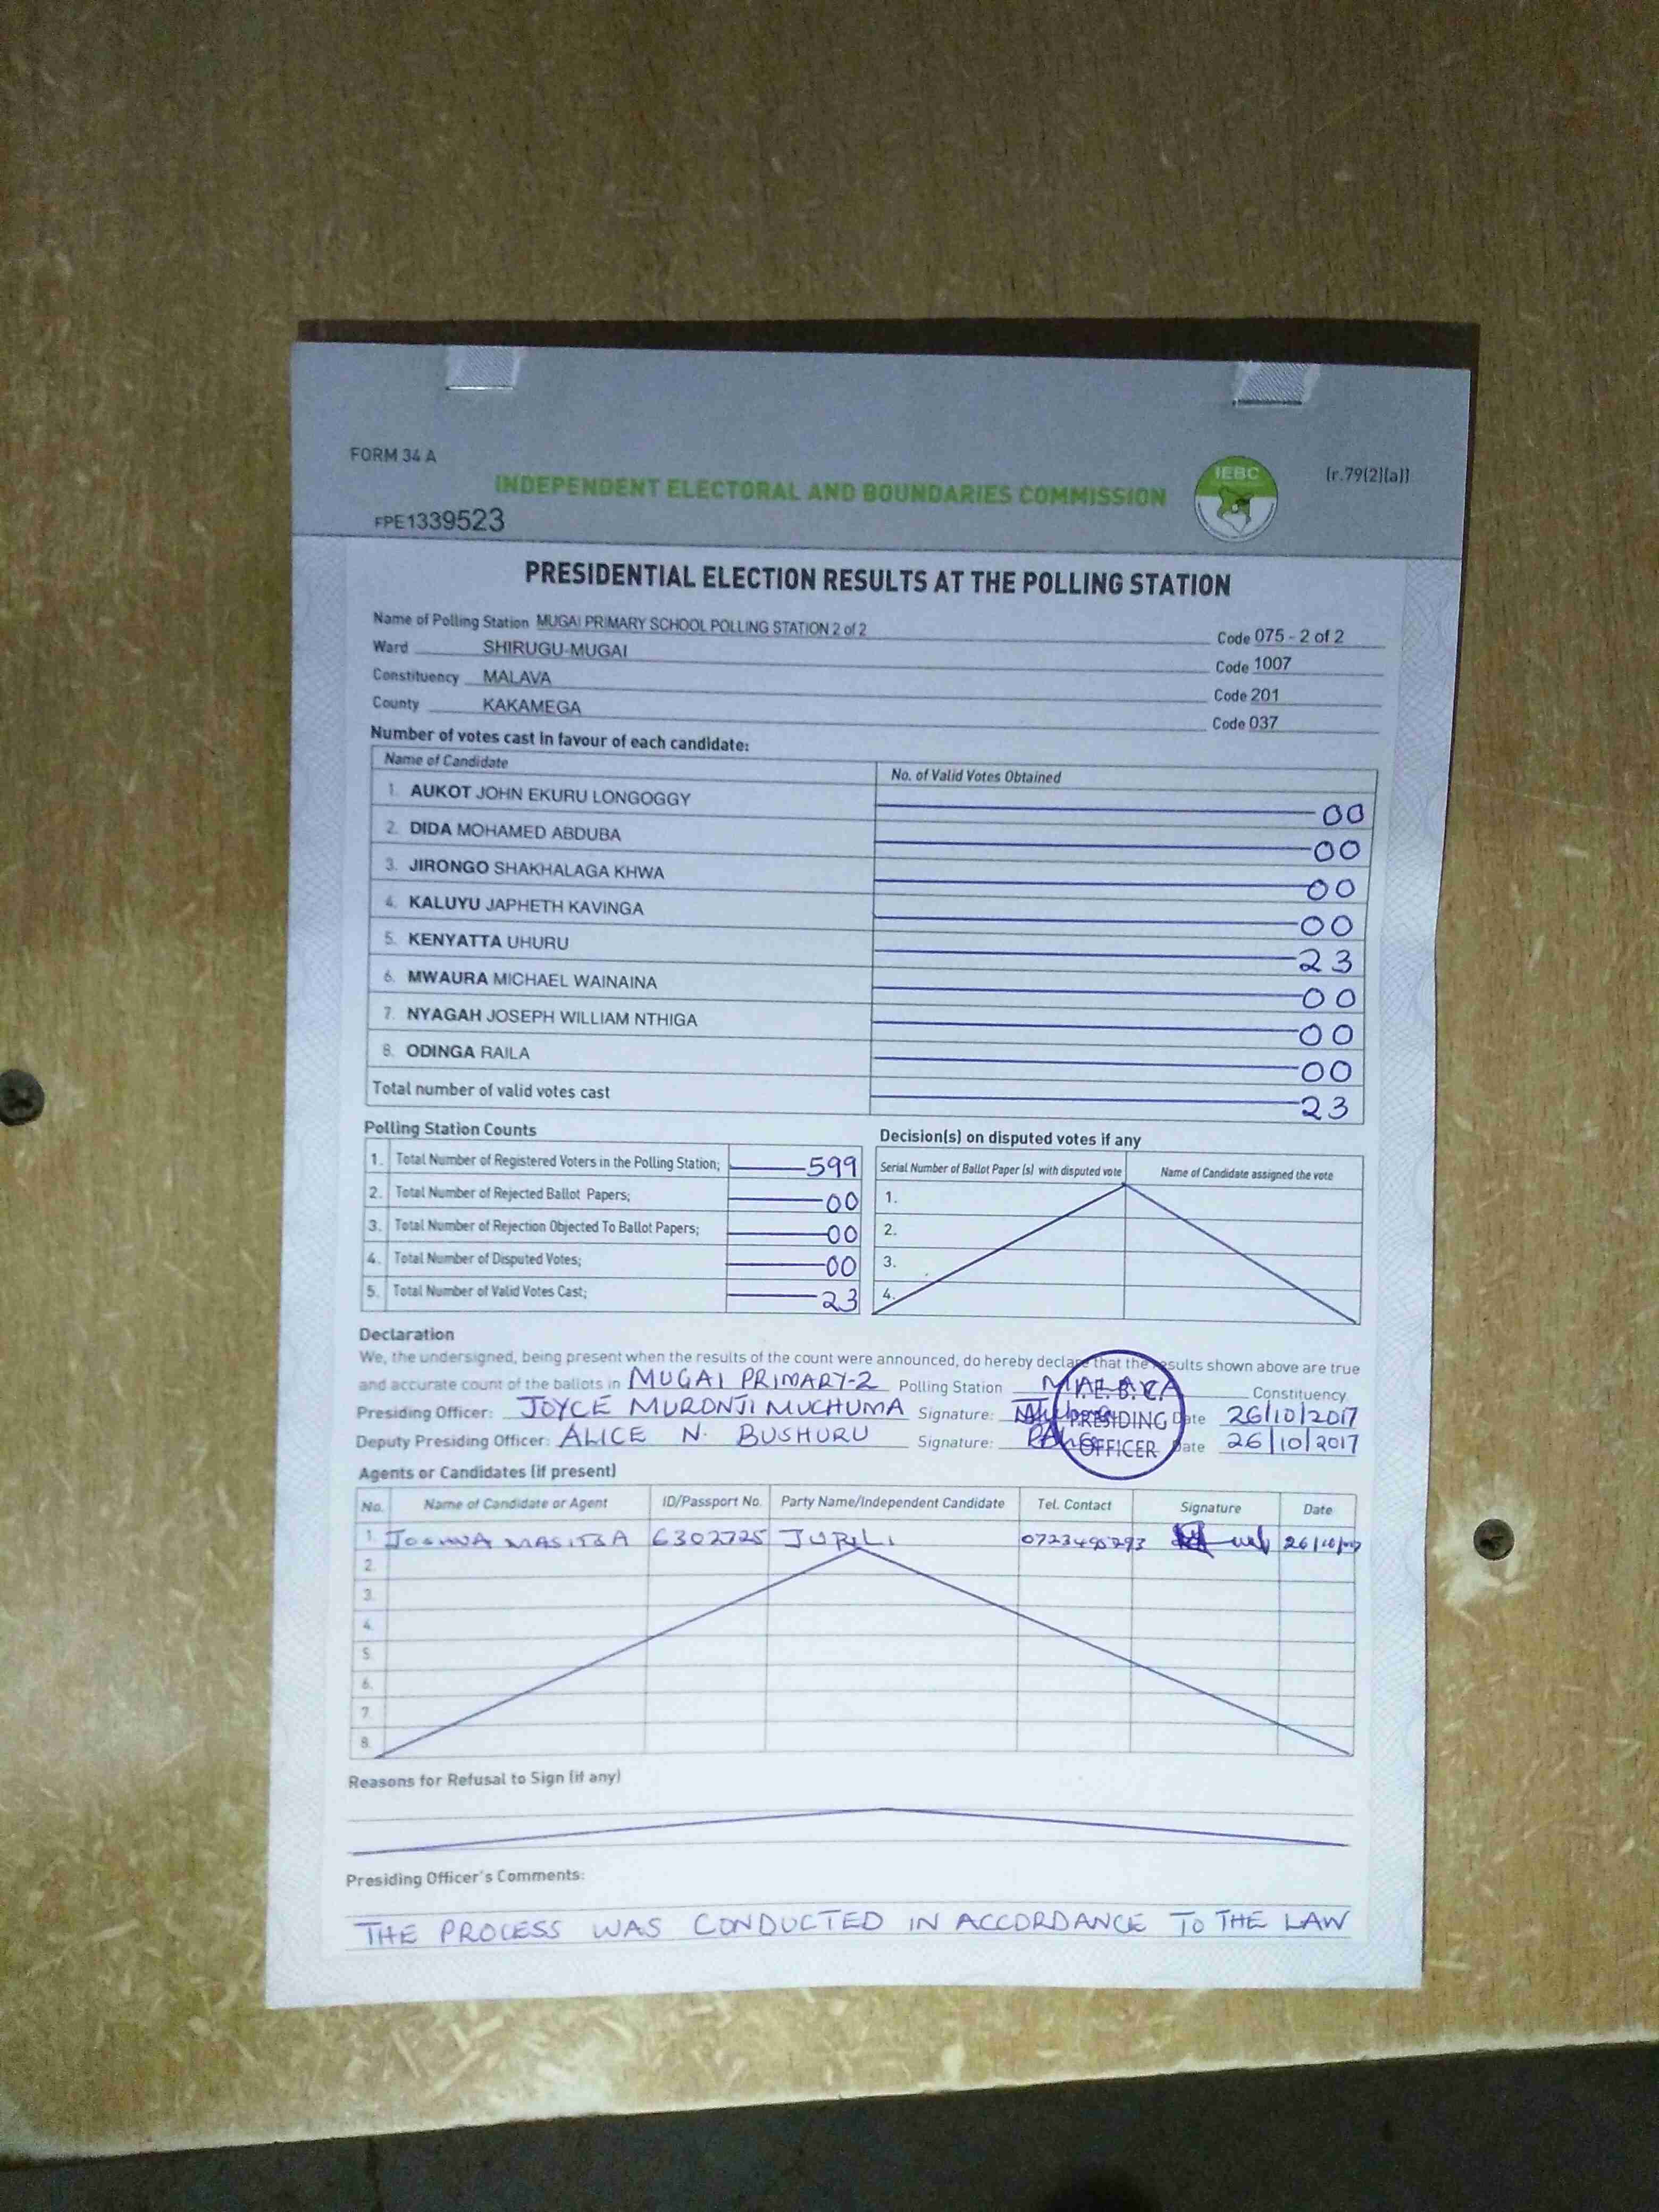 FORM 34 A
IEBC
(r.79(2)(a))
INDEPENDENT ELECTORAL AND BOUNDARIES COMMISSION
FPE1339523
PRESIDENTIAL ELECTION RESULTS AT THE POLLING STATION
Name of Polling Station MUGAI PRIMARY SCHOOL POLLING STATION 2 of 2 Code 075 - 2 of 2
Ward SHIRUGU-MUGAI Code 1007
Constituency MALAVA Code 201
County KAKAMEGA Code 037
Number of votes cast in favour of each candidate:
Name of Candidate No. of Valid Votes Obtained
1. AUKOT JOHN EKURU LONGOGGY 00
2. DIDA MOHAMED ABDUBA 00
3. JIRONGO SHAKHALAGA KHWA 00
4. KALUYU JAPHETH KAVINGA 00
5. KENYATTA UHURU 23
6. MWAURA MICHAEL WAINAINA 00
7. NYAGAH JOSEPH WILLIAM NTHIGA 00
8. ODINGA RAILA 00
Total number of valid votes cast 23
Polling Station Counts
1. Total Number of Registered Voters in the Polling Station; 599
2. Total Number of Rejected Ballot Papers; 00
3. Total Number of Rejection Objected To Ballot Papers; 00
4. Total Number of Disputed Votes; 00
5. Total Number of Valid Votes Cast; 23
Decision(s) on disputed votes if any
Serial Number of Ballot Paper (s) with disputed vote Name of Candidate assigned the vote
1.
2.
3.
4.
Declaration
We, the undersigned, being present when the results of the count were announced, do hereby declare that the results shown above are true
and accurate count of the ballots in MUGAI PRIMARY-2 Polling Station Constituency
Presiding Officer: JOYCE MURONJI MUCHUMA Signature: Date 26/10/2017
Deputy Presiding Officer: ALICE N. BUSHURU Signature: Date 26/10/2017
PRESIDING
OFFICER
Agents or Candidates (if present)
No. Name of Candidate or Agent ID/Passport No. Party Name/Independent Candidate Tel. Contact Signature Date
1. MASITSA 6302725 JUBILI 26/10/
2.
3.
4.
5.
6.
7.
8.
Reasons for Refusal to Sign (if any)
Presiding Officer's Comments:
THE PROCESS WAS CONDUCTED IN ACCORDANCE TO THE LAW